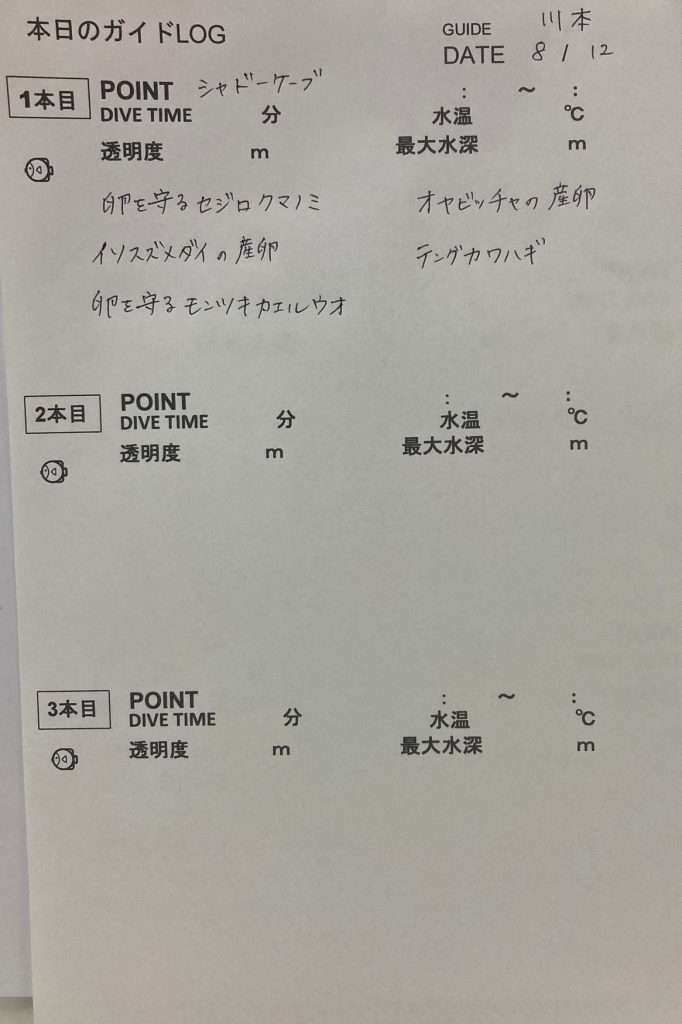 本日のガイドLOG
GUIDE 川本
DATE 8 / 12
1本目 POINT シャドーケーブ : ~ :
DIVE TIME 分 水温 ℃
透明度 m 最大水深 m
卵を守るセジロクマノミ オヤビッチャの産卵
イソスズメダイの産卵 テングカワハギ
卵を守るモンツキカエルウオ
2本目 POINT : ~ :
DIVE TIME 分 水温 ℃
透明度 m 最大水深 m
3本目 POINT : ~ :
DIVE TIME 分 水温 ℃
透明度 m 最大水深 m